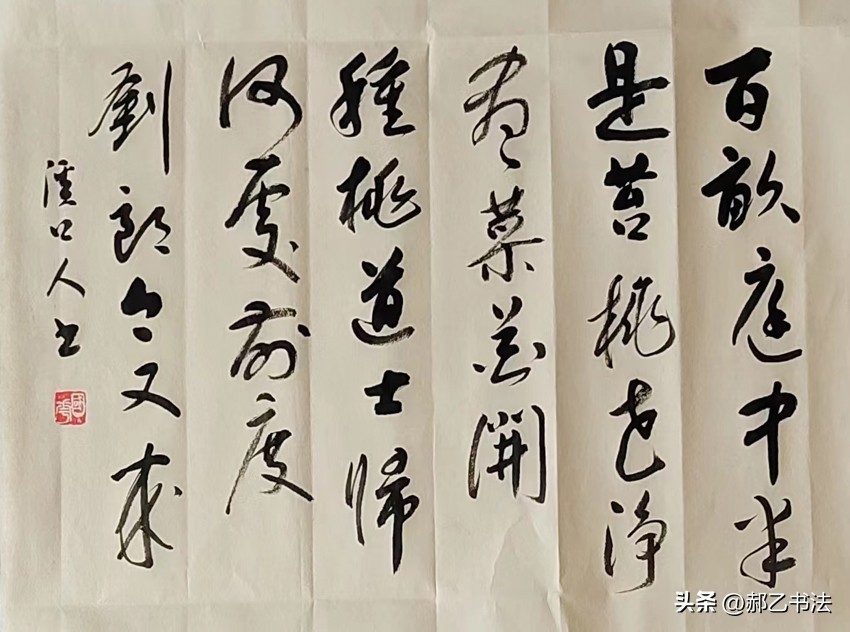 百畝庭中半
是苔桃花淨
盡菜花開
種桃道士歸
何處前度
劉郎今又來
口人書
头条 @郝乙书法